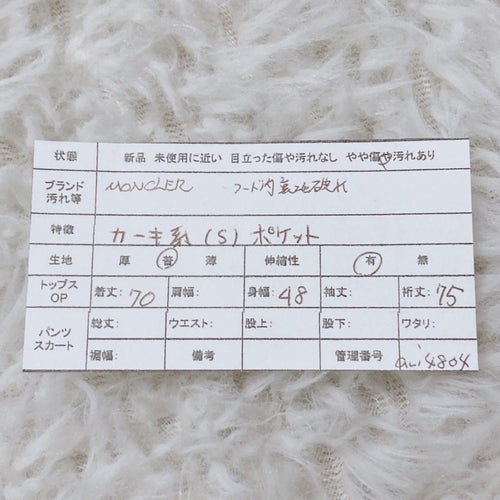 状態 新品 未使用に近い 目立った傷や汚れなし やや傷や汚れあり
ブランド 汚れ等 MONCLER フード内裏地破れ
特徴 カーキ系 (S) ポケット
生地 厚 普 薄 伸縮性 有 無
トップス OP 着丈: 70 肩幅: 身幅: 48 袖丈: 裄丈: 75
パンツ スカート 総丈: ウエスト: 股上: 股下: ワタリ:
裾幅: 備考 管理番号 ali4804